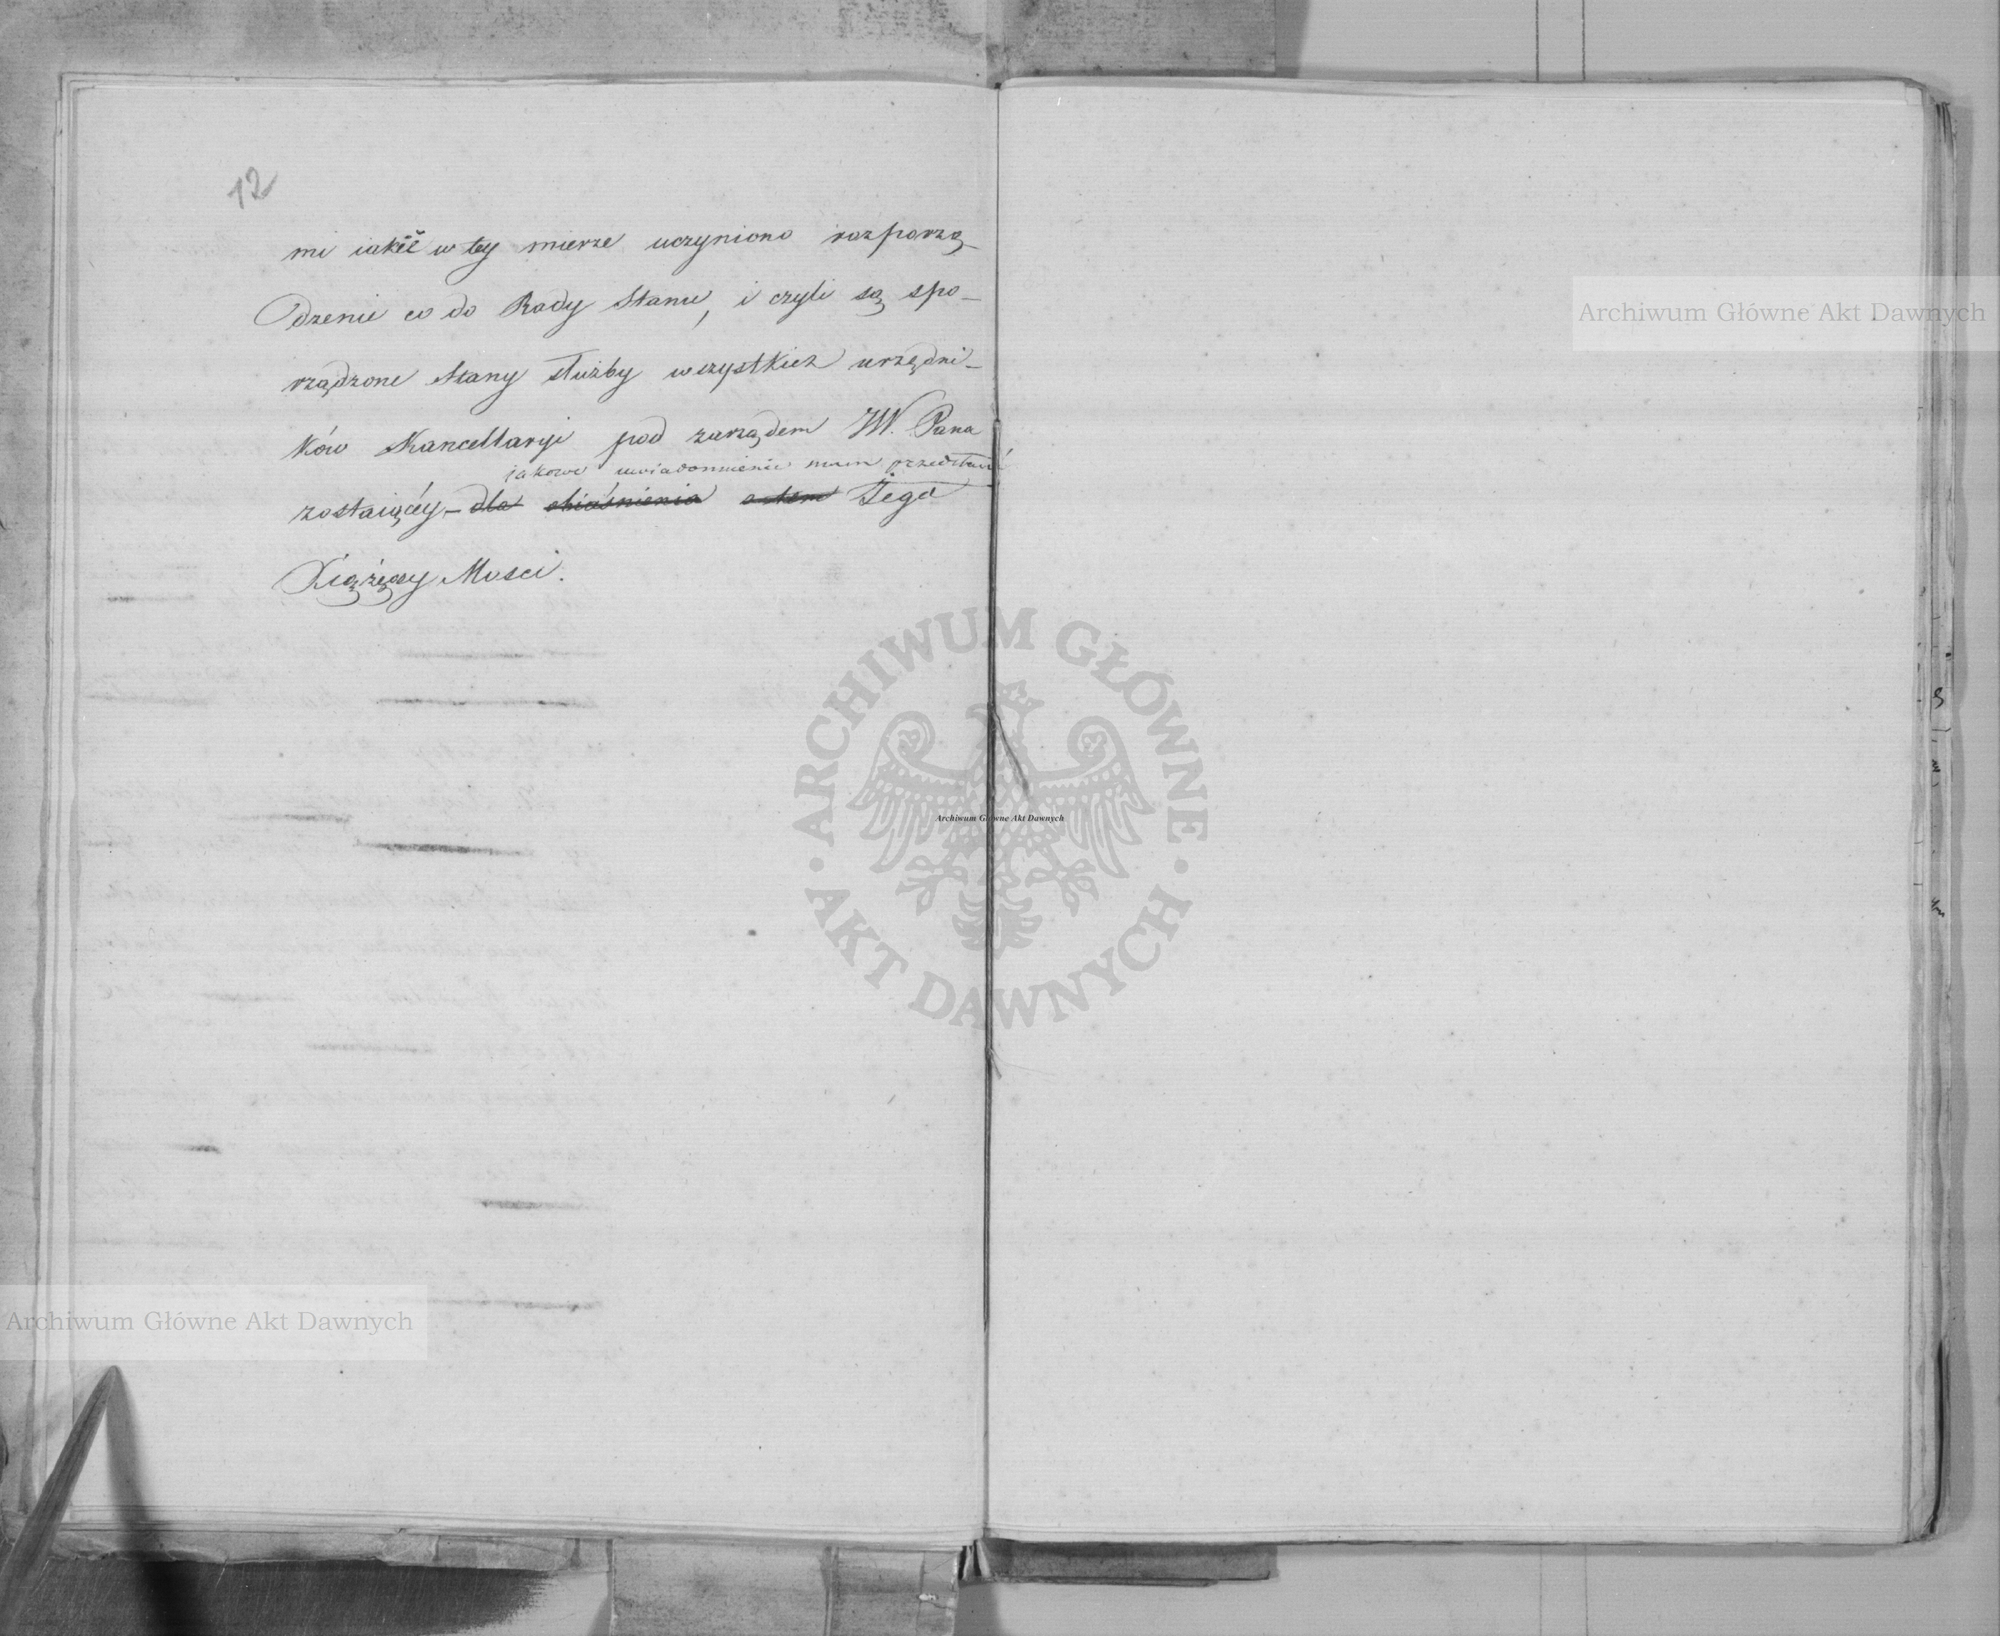 12
mi iakie w tey mierze uczyniono rozporzą-
dzenie co do Rady Stanu, i czyli są spo-
rządzone Stany służby wszystkich urzędni-
ków Kancellaryi pod zarządem JW. Pana
jakowe uwiadomienie mam przedstawić
zostaiącéy – dla obiaśnienia o tem Jego
Xiążęcey Mości.
Archiwum Główne Akt Dawnych
ARCHIWUM GŁÓWNE · AKT DAWNYCH ·
Archiwum Główne Akt Dawnych
Archiwum Główne Akt Dawnych